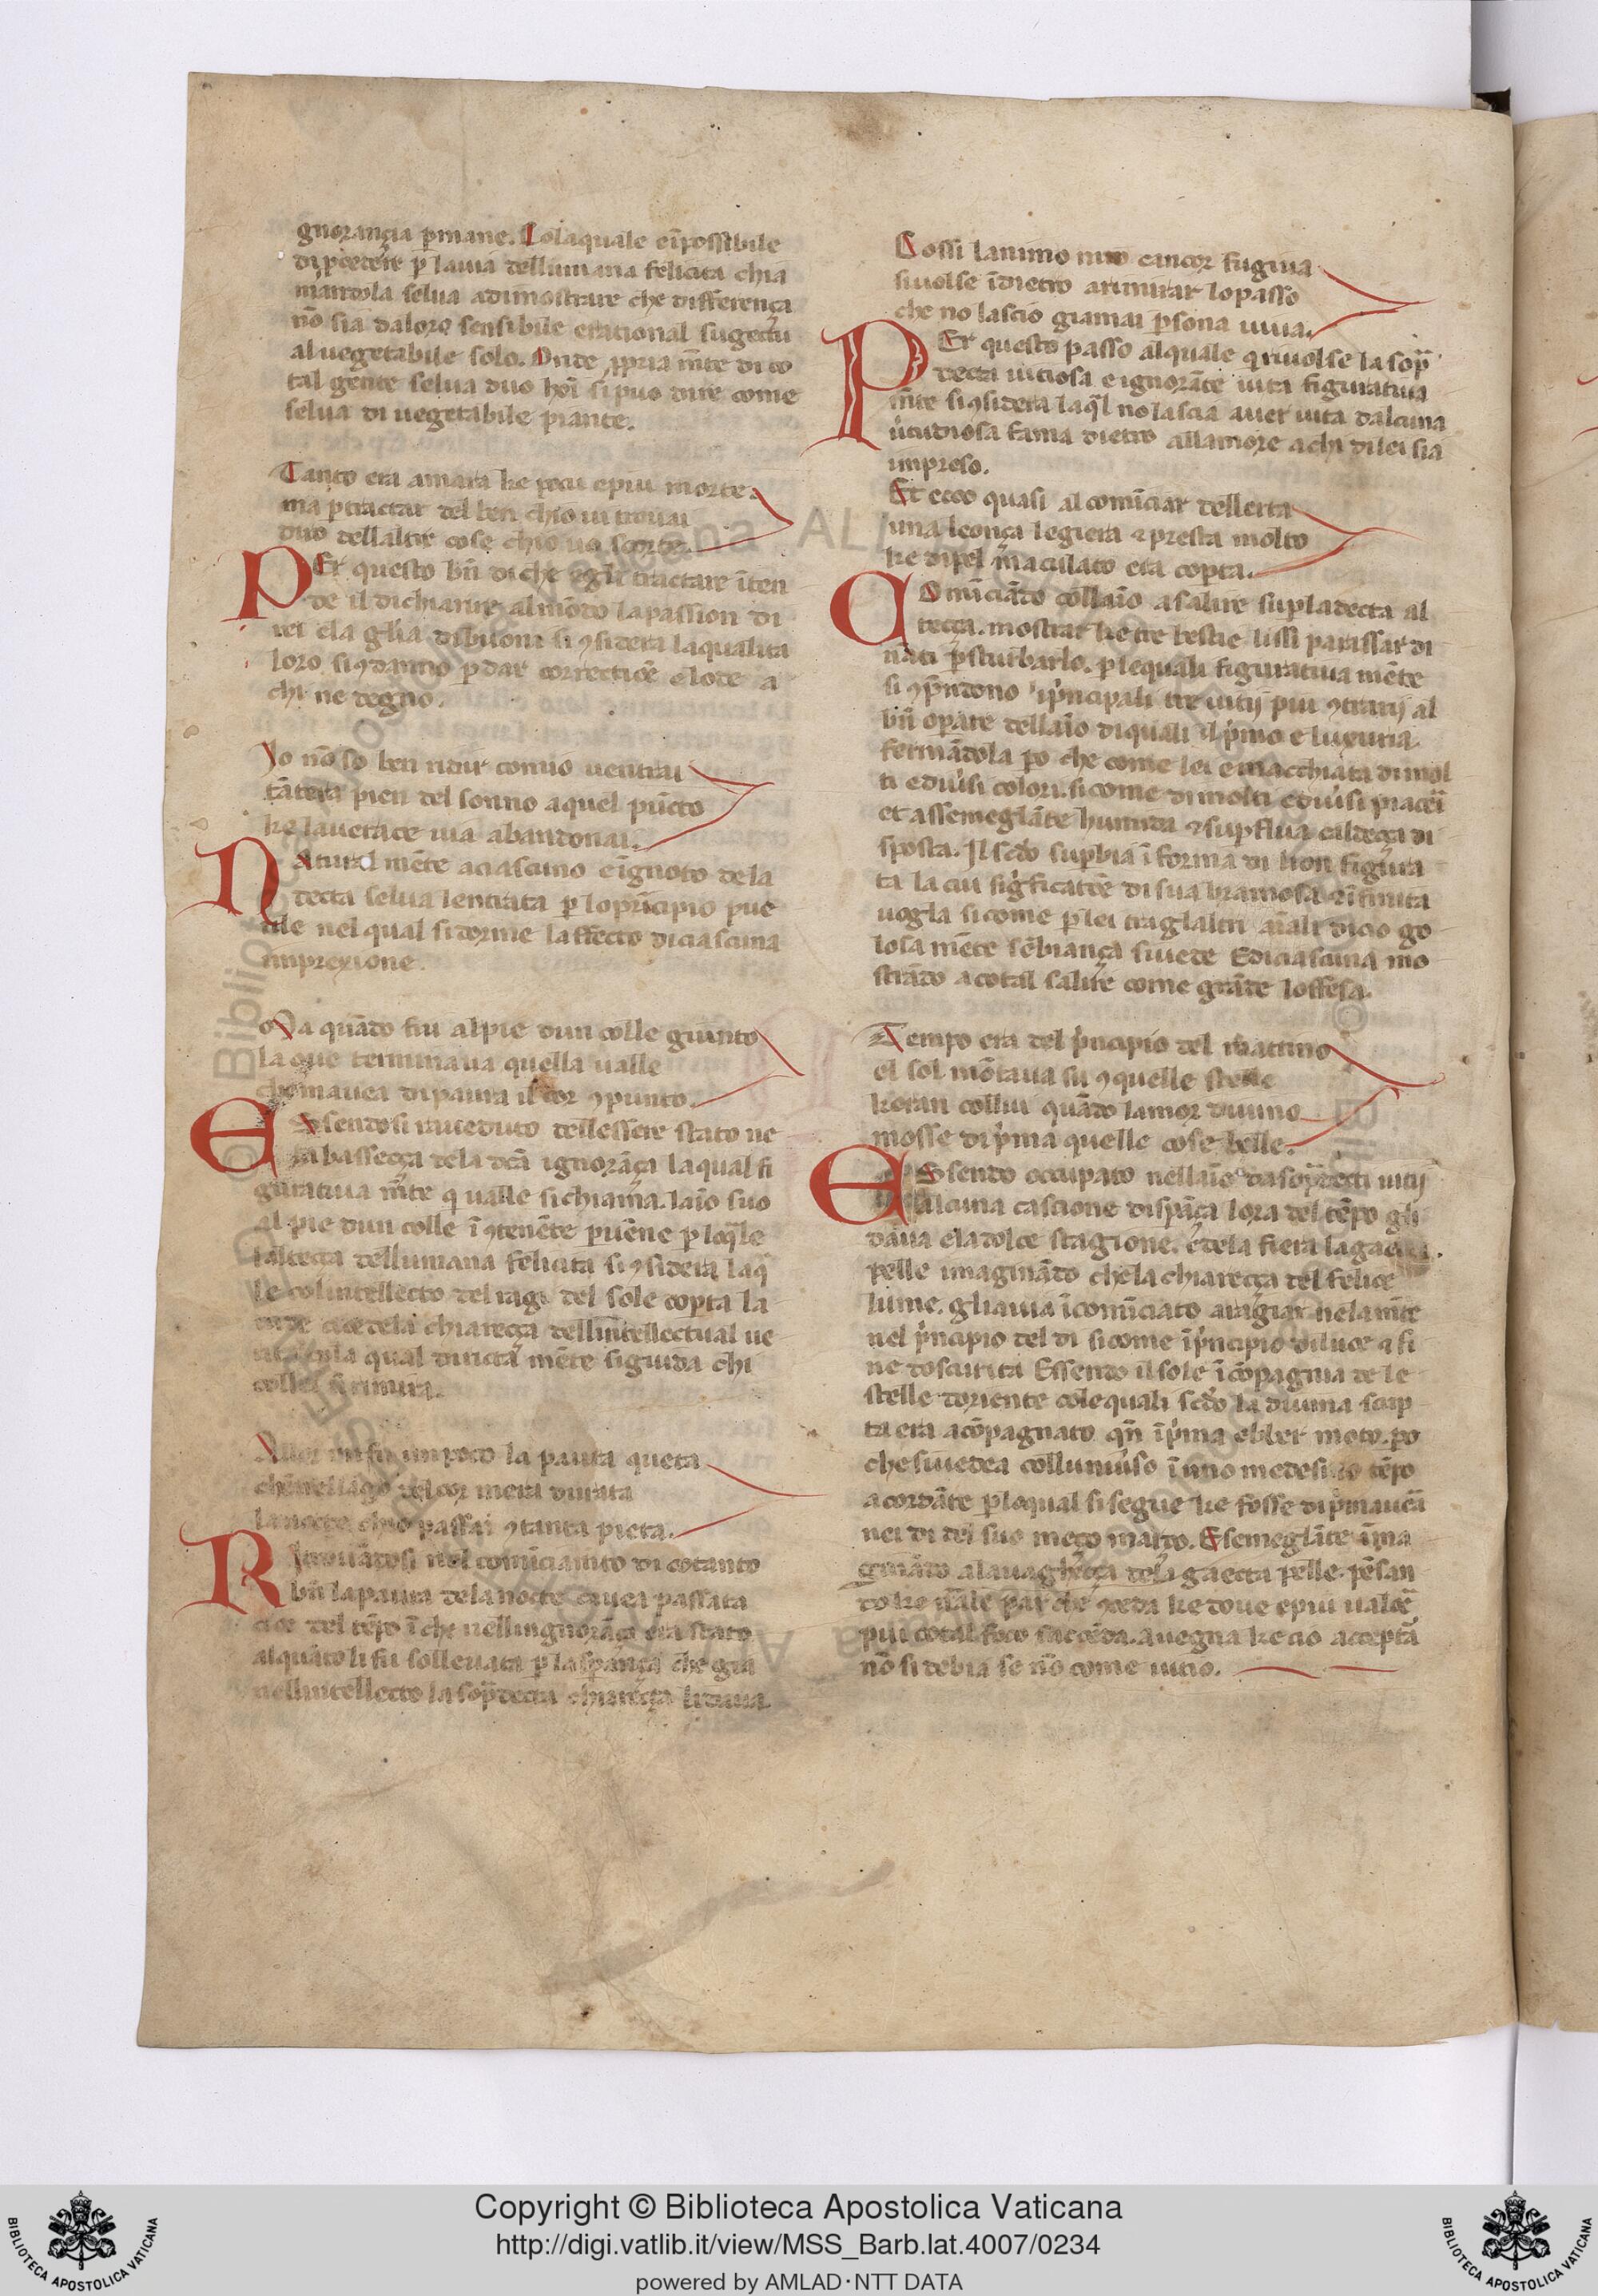 gnorança ꝑmane. Colaquale eĩpossibile
di ꝓcedere ꝑ lauia dellumana felicita chia
mandola selua adimostrare che differença
nõ sia daloro sensibile erational sugecto
aluegetabile solo. Onde ꝓpria m̃te di co
tal gente selua duo hoĩ si puo dire come
selua di uegetabile piante.
Tanto era amara ke poco epiu morte.
ma ꝑ tractar del ben chio ui trouai
diro dellaltre cose chio uo scorte.
PEr questo bñ di che egli tractare ĩten
de il dichiarire almõdo lapassion di
rei ela gl̃ia dibuoni si ꝯsidera laqualita
loro si ꝯdanno ꝑ dar correctiõe elode a
chi ne degno.
Io nõ so ben ridir comio uentrai
tãtera pien del sonno aquel pũcto
ke lauerace uia abandonai.
NAtural mẽte aciascuno eĩgnoto dela
decta selua lentrata ꝑ loprĩcipio pue
rile nel qual sidorme laffecto diciascuna
imprexione.
Ma quãdo fui alpie dun colle giunto
la oue terminaua quella ualle
chemauea dipaura il cor ꝯpunto.
ESsendosi aueduto dellessere stato ne
la bassecça dela dcã ignorãça laqual fi
guratiua m̃te q̇ ualle sichiama. laĩo suo
al pie dun colle ĩ ꝯtenẽte ꝑuẽne ꝑ loq̃le
laltecça dellumana felicita si ꝯsidera laq̃
le colintellecto del ragi del sole coꝑta la
uide cioe dela chiarecça dellintellectual ue
rita cola qual diricta mẽte siguida chi
colle si rimira.
Allor mi fu unpoco la paura queta
chenellago del cor mera durata
lanocte chio passai ꝯtanta pieta.
RItrouãdosi nel comĩciamẽto di cotanto
bñ lapaura delanocte cauea passata
cioe del tẽpo ĩ che nellingnorãça era stato
alquãto li fu solleuata ꝑ la sperança che gia
nellintellecto la sop̃decta chiarecça lidaua.
Cossi lanimo mio cancor fugiua
siuolse ĩdietro arimirar lopasso
che no lascio giamai ꝑsona uiua.
PEr questo passo alquale q̇ riuolse la sop̃
decta uiciosa e ignorãte uita figuratiua
m̃te si ꝯsidera laq̃l no lascia auer uita dalcuna
uirtudiosa fama dietro allamore achi dilei sia
impreso.
Et ecco quasi al comĩciar dellerta
una leonça legiera ⁊ presta molto
ke dipel maculato era coꝑta.
COmĩciãdo collaĩo asalire supladecta al
tecça. mostrar ke tre bestie lissi parassar di
nãçi ꝑ sturbarlo. ꝑ lequali figuratiua mẽte
si ꝯp̃ndono i pṙncipali tre uitij piu ꝯtrarij al
bñ oꝑare dellaĩo diquali il pṙmo e luxuria
fermãdola ꝑo che come lei emacchiata di mol
ti ediuṡi colori. sicome dimolti ediuṡi piacẽi
et assemeglãte humida ⁊ suꝑflua caldecça di
sposta. Il sc̃do suꝑbia ĩ forma di lion figura
ta la cui significatiõe di sua bramosa ⁊ ĩfinita
uogla sicome ꝑ lei traglaltri aĩali dicio go
losa mẽte sẽbiança siuede Ediciascuna mo
strãdo acotal salire come grãde loffesa.
Tempo era del pṙncipio del mattino
el sol mõtaua su ꝯquelle stelle
keran collui quãdo lamor diuino
mosse dipṙma quelle cose belle.
ESsendo occupato nellaĩo dasop̃decti uitij
alcuna cascione disperãça lora del tẽpo gli
daua eladolce stagione. edela fiera lagaecta.
pelle imaginãdo che la chiarecça del felice
lume. gliauia ĩcomĩciato aragiar nelam̃te
nel pṙncipio del di sicome ĩ pṙncipio diluce ⁊ fi
ne doscurita Essendo il sole ĩ cõpagnia de le
stelle doriente colequali sc̃do la diuina scrip
ta era acõpagnato qñ ĩ pṙma ebber moto. ꝑo
che siuedea colluniuṡo ĩ uno medesimo tẽpo
acordãte ꝑ loqual si segue ke fosse dipṙmauẽa
nei di del suo meço março. Esemeglãte ĩma
ginãdo alauaghecça dela gaecta pelle. pẽsan
do ke tale par che ꝯceda ke doue epiu ualoẽ
piu cotal foco saccẽda. auegna ke cio acceptã
nõ si debia se nõ come uicio.
Copyright © Biblioteca Apostolica Vaticana
http://digi.vatlib.it/view/MSS_Barb.lat.4007/0234
powered by AMLAD·NTT DATA
BIBLIOTECA APOSTOLICA VATICANA
BIBLIOTECA APOSTOLICA VATICANA